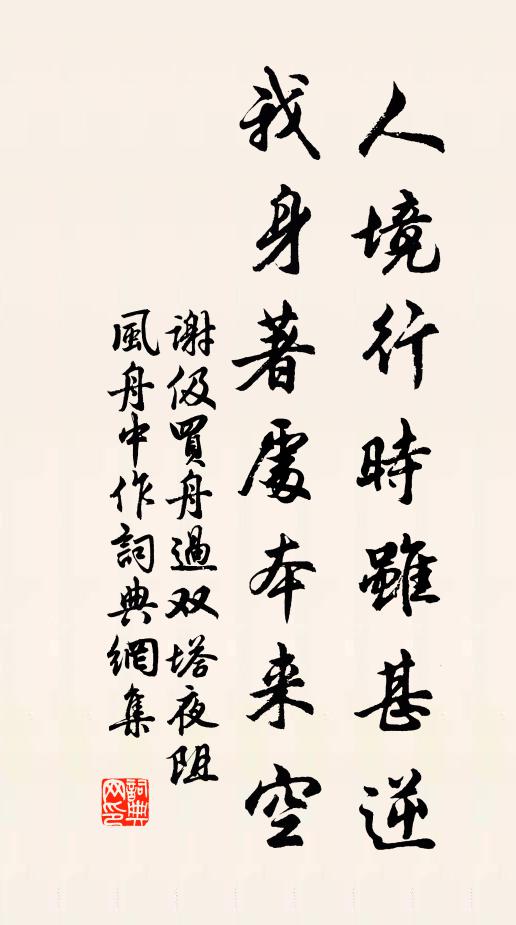 人境行時雖甚逆
我身著處本来空
謝伋買舟過双塔夜阻
風舟中作詞典網集
詞典
网印